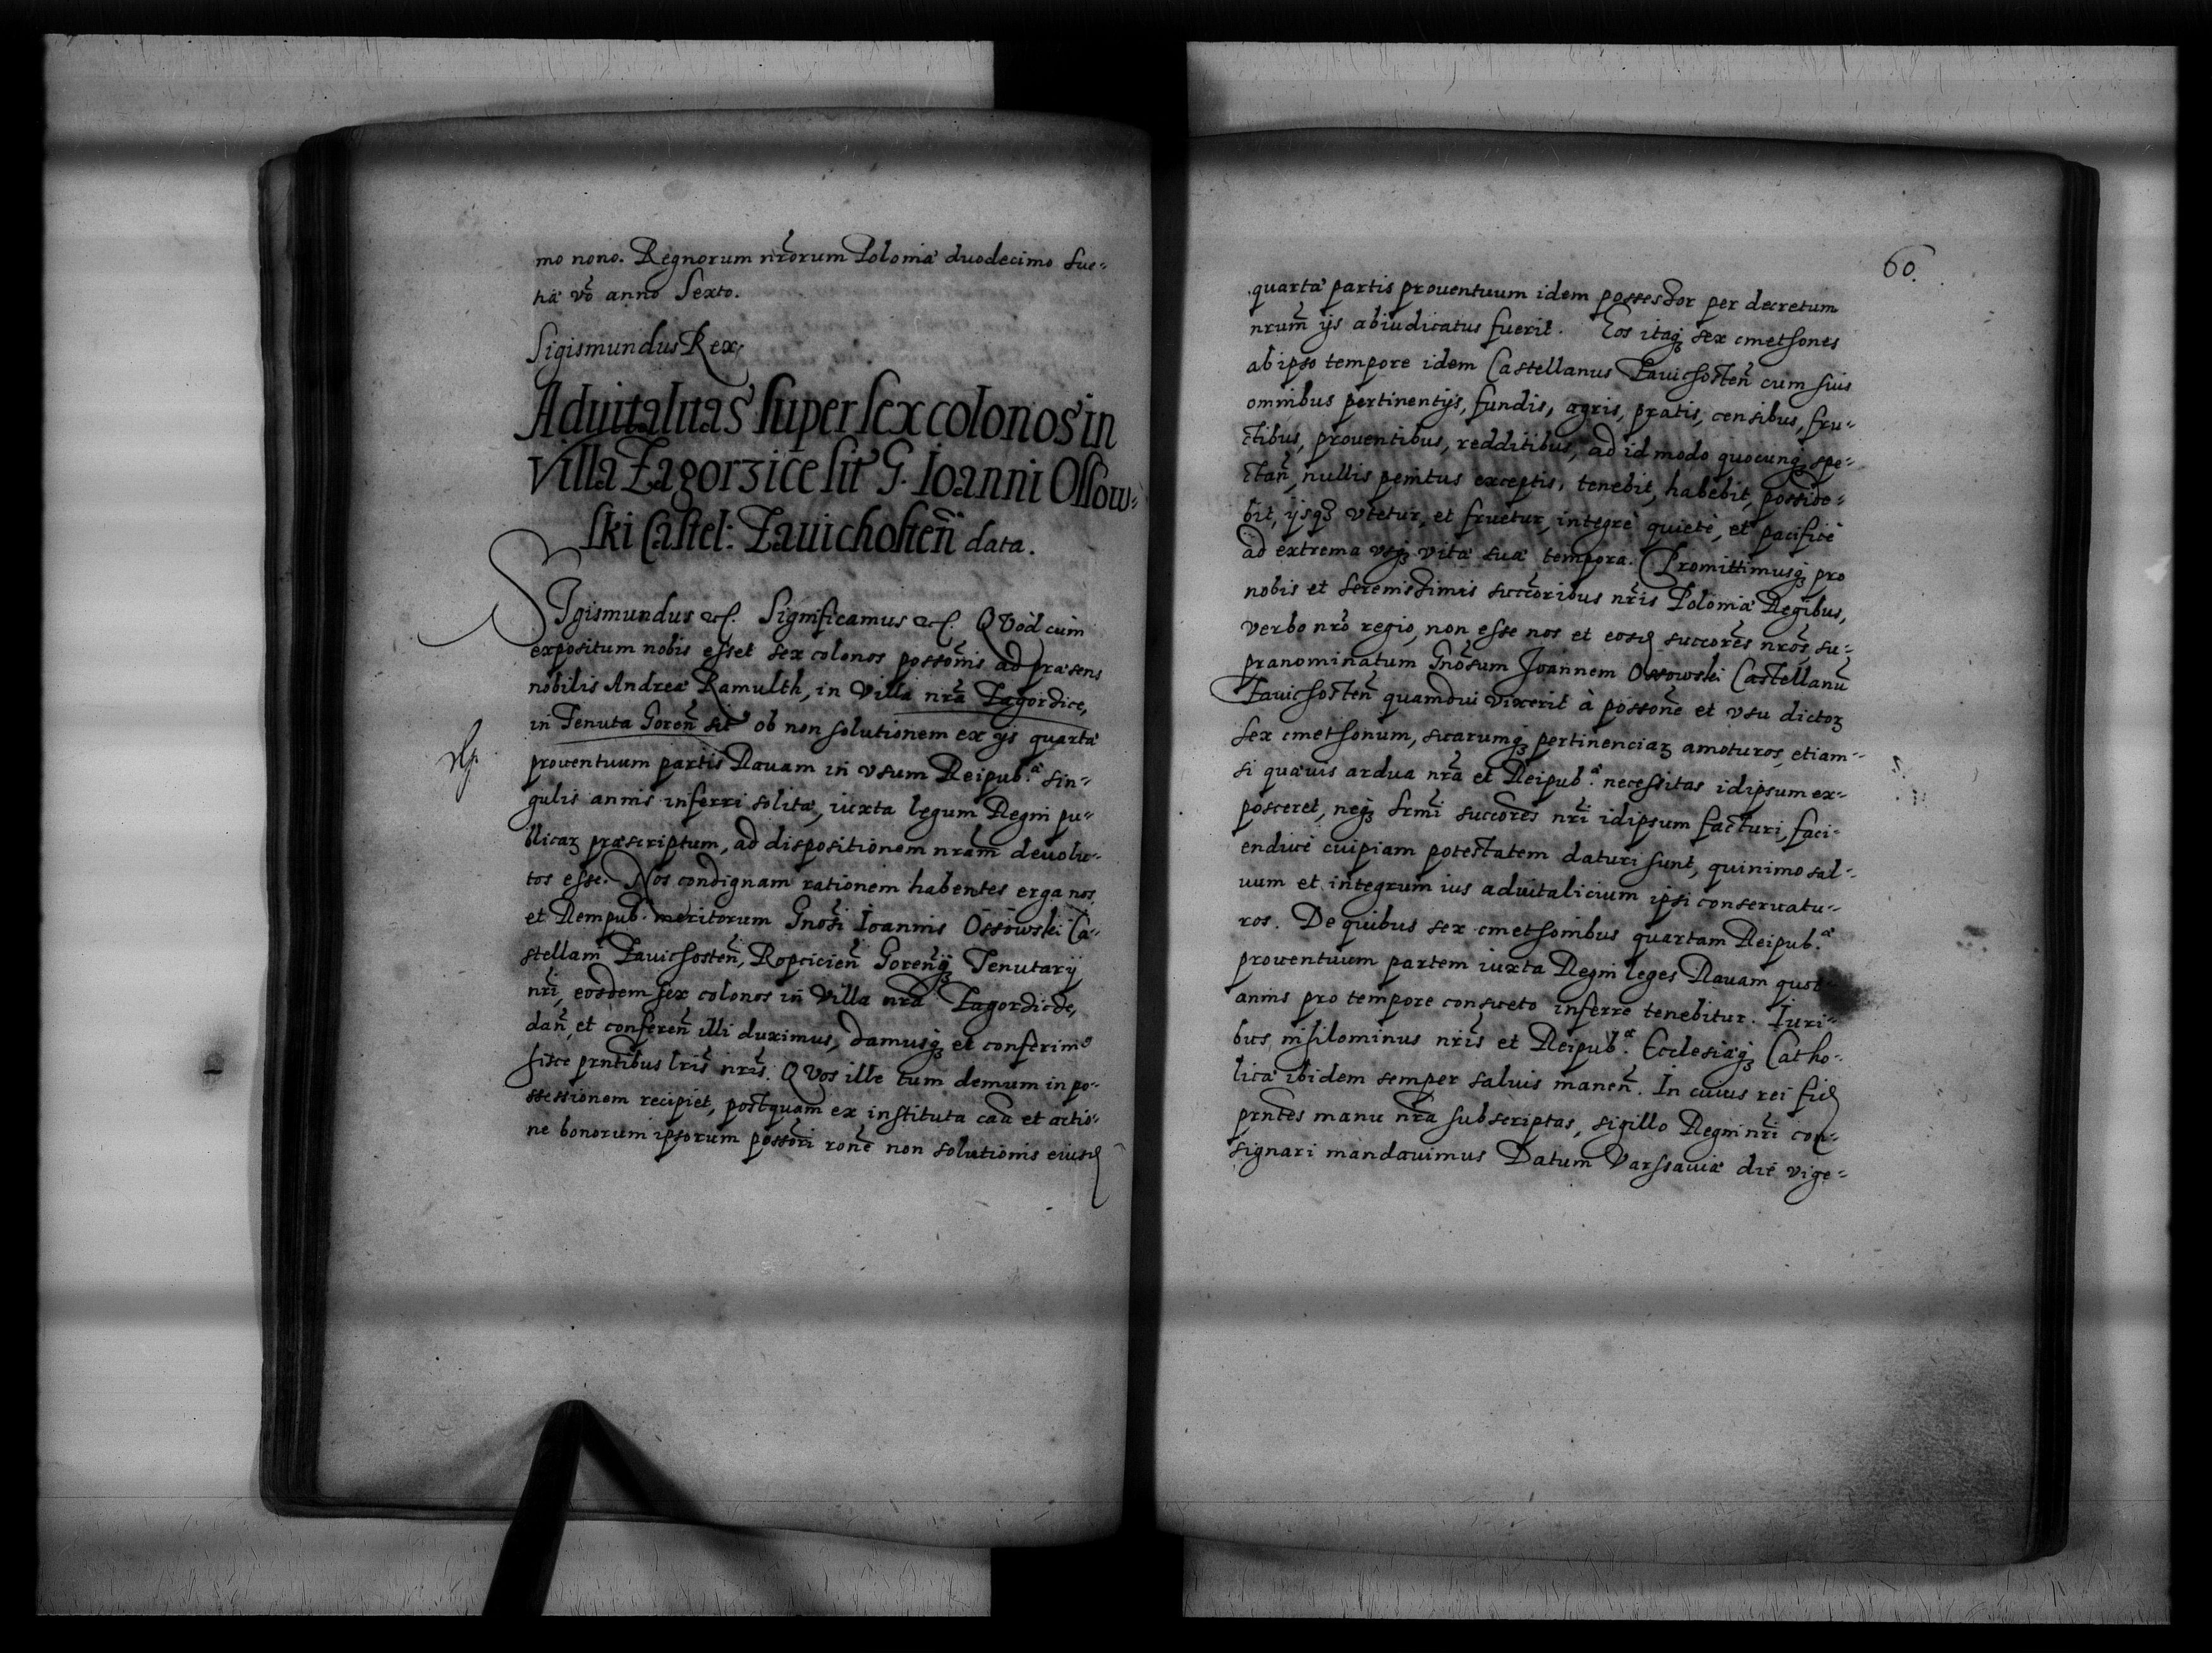 mo nono. Regnorum nrorum Poloniæ duodecimo Sue-
tiæ vo anno Sexto.
Sigismundus Rex
Aduitalitas super sex colonos in
Villa Zagorzice sit G. Ioanni Ossow-
ski Castel: Zauichosten data.
SIgismundus etc. Significamus etc. QVod cum
expositum nobis esset sex colonos possonis ad præsens
nobilis Andreæ Ramulth, in Villa nra Zagordice,
in Tenuta Goren sit ob non solutionem ex ijs quartæ
prouentuum partis Rauam in vsum Reipub:æ sin-
gulis annis inferri solitæ, iuxta legum Regni pu-
blicaꝝ præscriptum, ad dispositionem nram deuolu-
tos esse. Nos condignam rationem habentes erga nos
et Rempub: meritorum Gnosi Ioannis Ossowski Ca-
stellani Zauichosten, Ropcicien Gorenqꝫ Tenutarij
nri, eosdem sex colonos in Villa nra Zagordicze,
dan, et conferen illi duximus, damusqꝫ et conferim9
hisce prntibus lris nris. QVos ille tum demum in po-
ssessionem recipiet, postquam ex instituta caa et actio-
ne bonorum ipsorum possori rone non solutionis eiusd
60.
quartæ partis prouentuum idem possessor per decretum
nrum ijs abiudicatus fuerit. Eos itaqꝫ sex cmethones
ab ipso tempore idem Castellanus Zauichosten cum suis
omnibus pertinentijs, fundis, agris, pratis, censibus, fru-
ctibus, prouentibus, redditibus, ad id modo quocunqꝫ spe-
ctan, nullis penitus exceptis, tenebit, habebit, posside-
bit, ijsqꝫ vtetur, et fruetur, integrè quietè, et pacificè
ad extrema vsqꝫ vitæ suæ tempora. Promittimusqꝫ pro
nobis et serenissimis succoribus nris Poloniæ Regibus,
verbo nro regio, non esse nos et eosd succores nros su-
pranominatum Gnosum Joannem Ossowski Castellanu
Zauichosten quamdiu vixerit à possone et vsu dictoꝝ
sex cmethonum, suarumqꝫ pertinenciaꝝ amoturos, etiam-
si quæuis ardua nra et Reipub:æ necessitas id ipsum ex-
posceret, neqꝫ srmi succores nri id ipsum facturi, faci-
endiuè cuipiam potestatem daturi sunt, quinimo sal-
uum et integrum ius aduitalicium ipsi conseruatu-
ros. De quibus sex cmethonibus quartam Reipub:æ
prouentuum partem iuxta Regni leges Rauam quot-
annis pro tempore consueto inferre tenebitur. Iuri-
bus nihilominus nris et Reipub:æ Ecclesiæqꝫ Catho-
licæ ibidem semper saluis manen. In cuius rei fid
prntes manu nra subscriptas, sigillo Regni nri con-
signari mandauimus Datum Varssauiæ die vige-